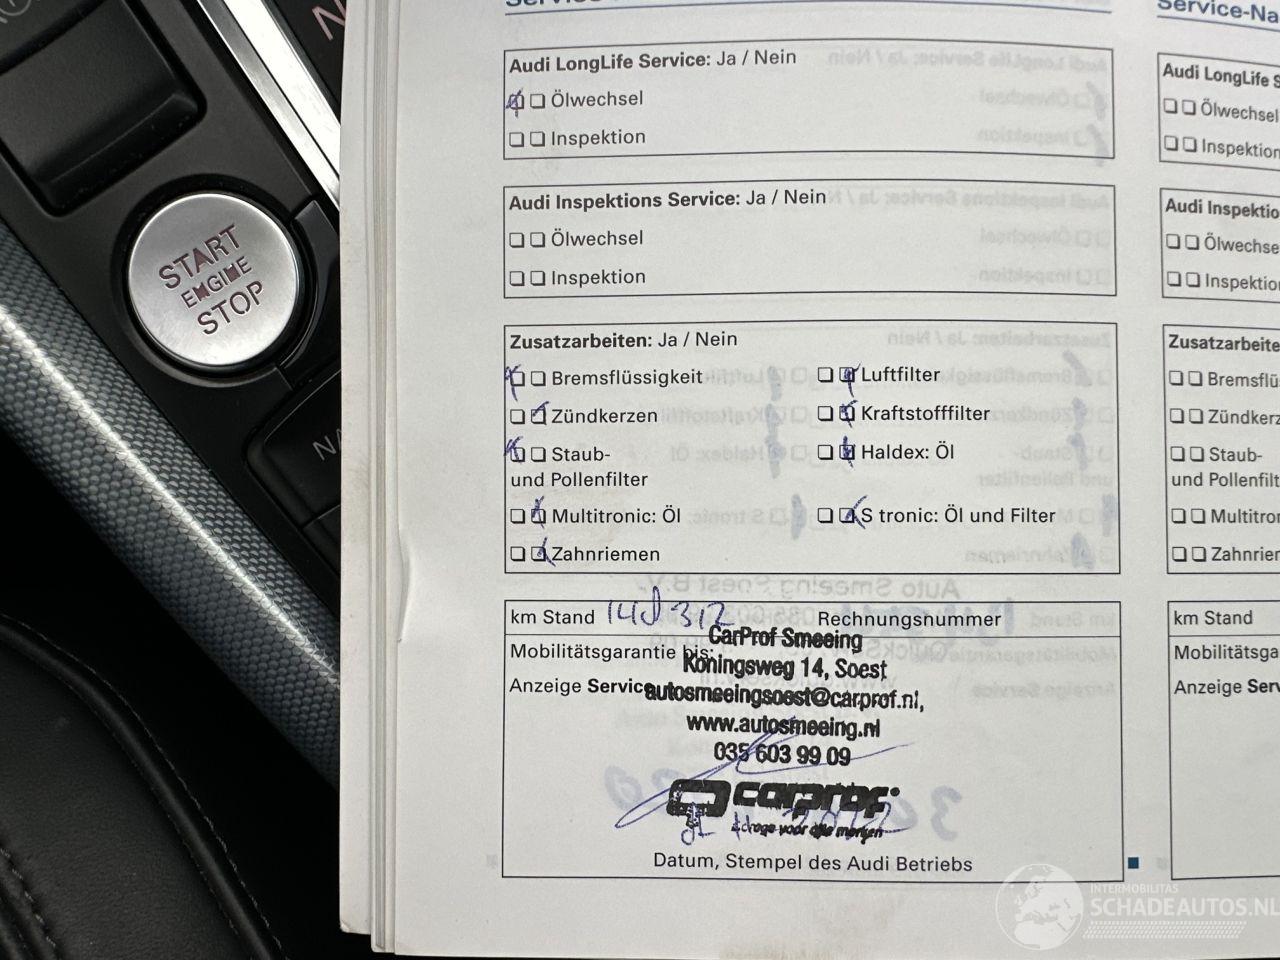 START
ENGINE
STOP
Audi LongLife Service: Ja / Nein
Ölwechsel
Inspektion
Audi Inspektions Service: Ja / Nein
Ölwechsel
Inspektion
Zusatzarbeiten: Ja / Nein
Bremsflüssigkeit Luftfilter
Zündkerzen Kraftstofffilter
Staub- Haldex: Öl
und Pollenfilter
Multitronic: Öl S tronic: Öl und Filter
Zahnriemen
km Stand Rechnungsnummer
CarProf Smeeing
Mobilitätsgarantie bis:
Koningsweg 14, Soest
Anzeige Service
autosmeeingsoest@carprof.nl,
www.autosmeeing.nl
035 603 99 09
carprof
Datum, Stempel des Audi Betriebs
Service-Na
Audi LongLife S
Ölwechsel
Inspektion
Audi Inspektio
Ölwechse
Inspektio
Zusatzarbeite
Bremsflü
Zündkerz
Staub-
und Pollenfilt
Multitro
Zahnrie
km Stand
Mobilitätsga
Anzeige Serv
INTERMOBILITAS
SCHADEAUTOS.NL